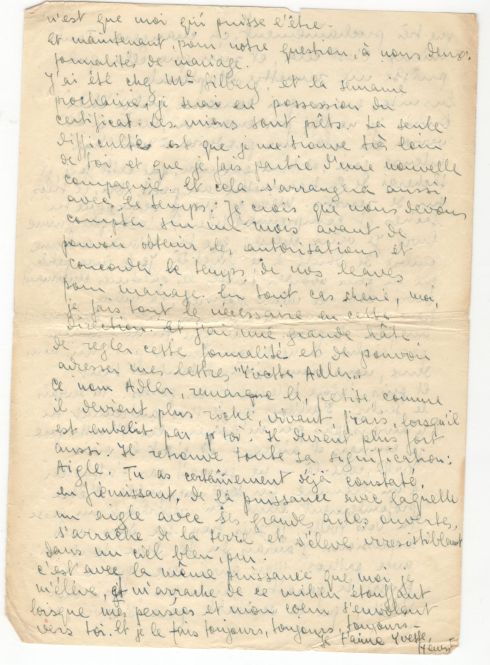 n'est que moi qui puisse l'être.
et maintenant, pour notre question, à nous deux:
formalité de mariage.
J'ai été chez Mr et la semaine
prochaine, je serai en possession du
certificat. Les miens sont prêts. La seule
difficulté est que je me trouve très loin
de toi et que je fais partie d'une nouvelle
compagnie et cela s'arrangera aussi
avec le temps. Je crois que nous devons
compter sur un mois avant de
pouvoir obtenir les autorisations et
concorder le temps de nos leaves
pour mariage. En tout cas chéri, moi,
je fais tout le nécessaire en cette
direction. et j'ai une grande hâte
de régler cette formalité et de pouvoir
adresser mes lettres "Yvette Adler".
Ce nom Adler, remarque petite, comme
il devient plus riche, vivant, frais, lorsqu'il
est embelit par toi. Il devient plus fort
aussi. Il retrouve toute sa signification:
Aigle. Tu as certainement déjà constaté,
en frémissant, de la puissance avec laquelle
un aigle avec ses grandes ailes ouvertes,
s'arrache de la terre et s'élève irresistiblement
dans un ciel bleu, pur.
c'est avec la même puissance que moi je
m'élève, et m'arrache de ce milieu étouffant
lorsque mes pensées et mon coeur s'envolent
vers toi. Et je le fais toujours, toujours, toujours -
je t'aime Yvette,